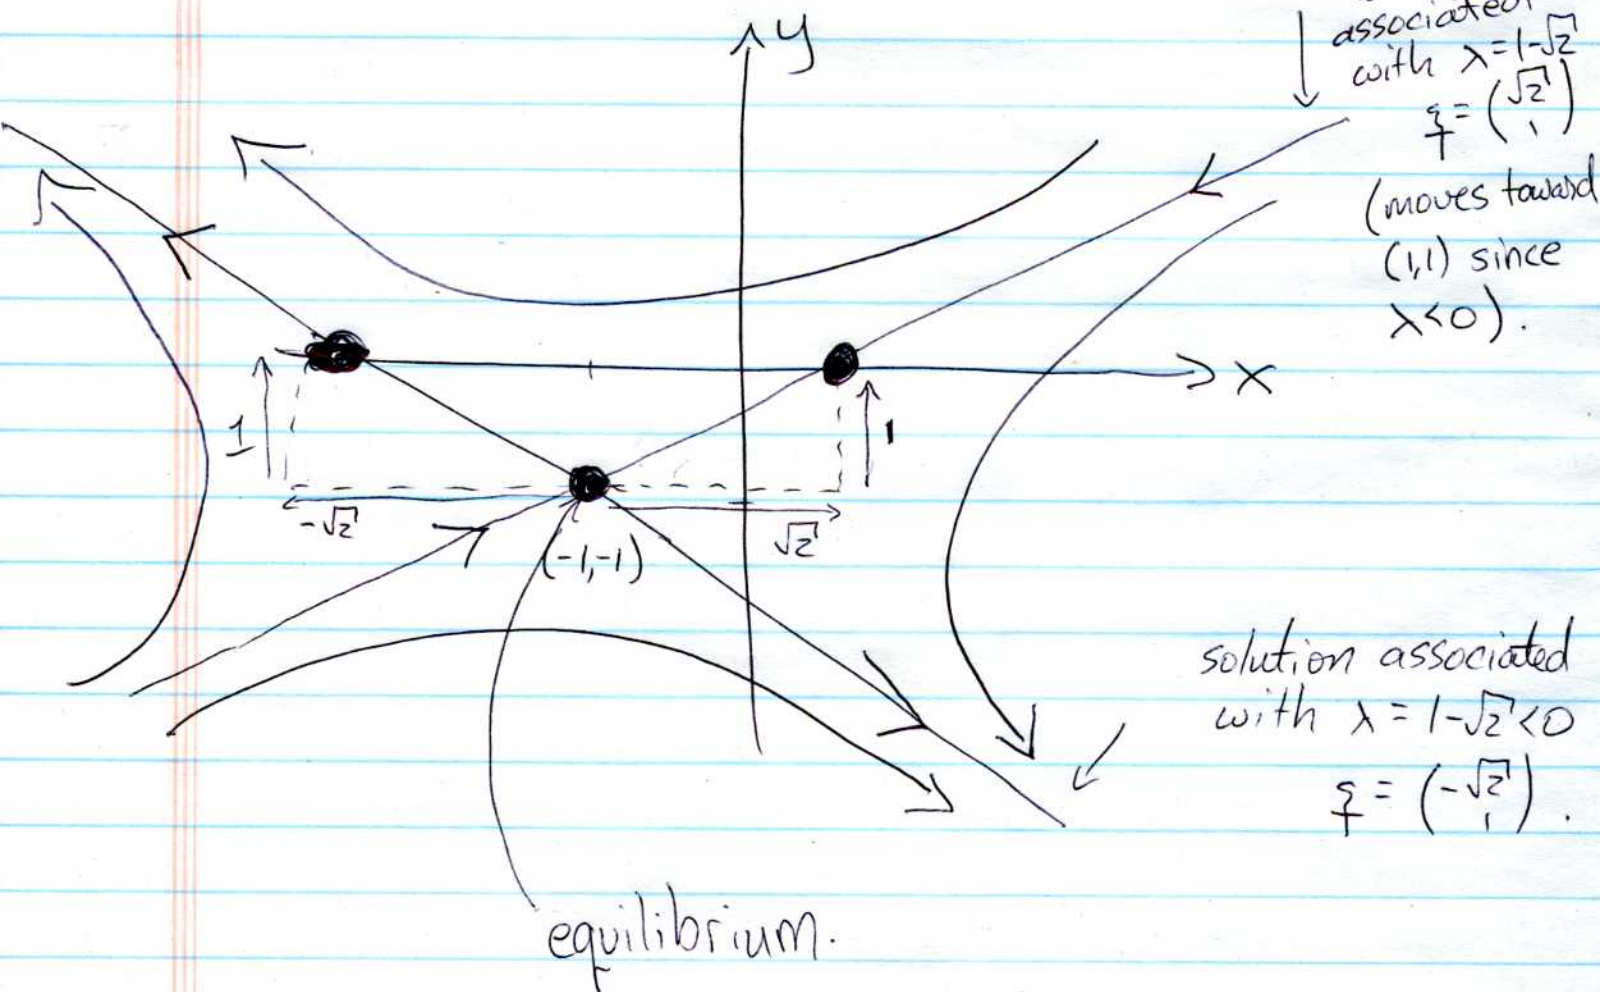 y
associated
with λ=1-√2
ξ = (√2
1)
(moves toward
(1,1) since
λ<0).
x
1
1
-√2
√2
(-1,-1)
solution associated
with λ = 1-√2<0
ξ = (-√2
1).
equilibrium.